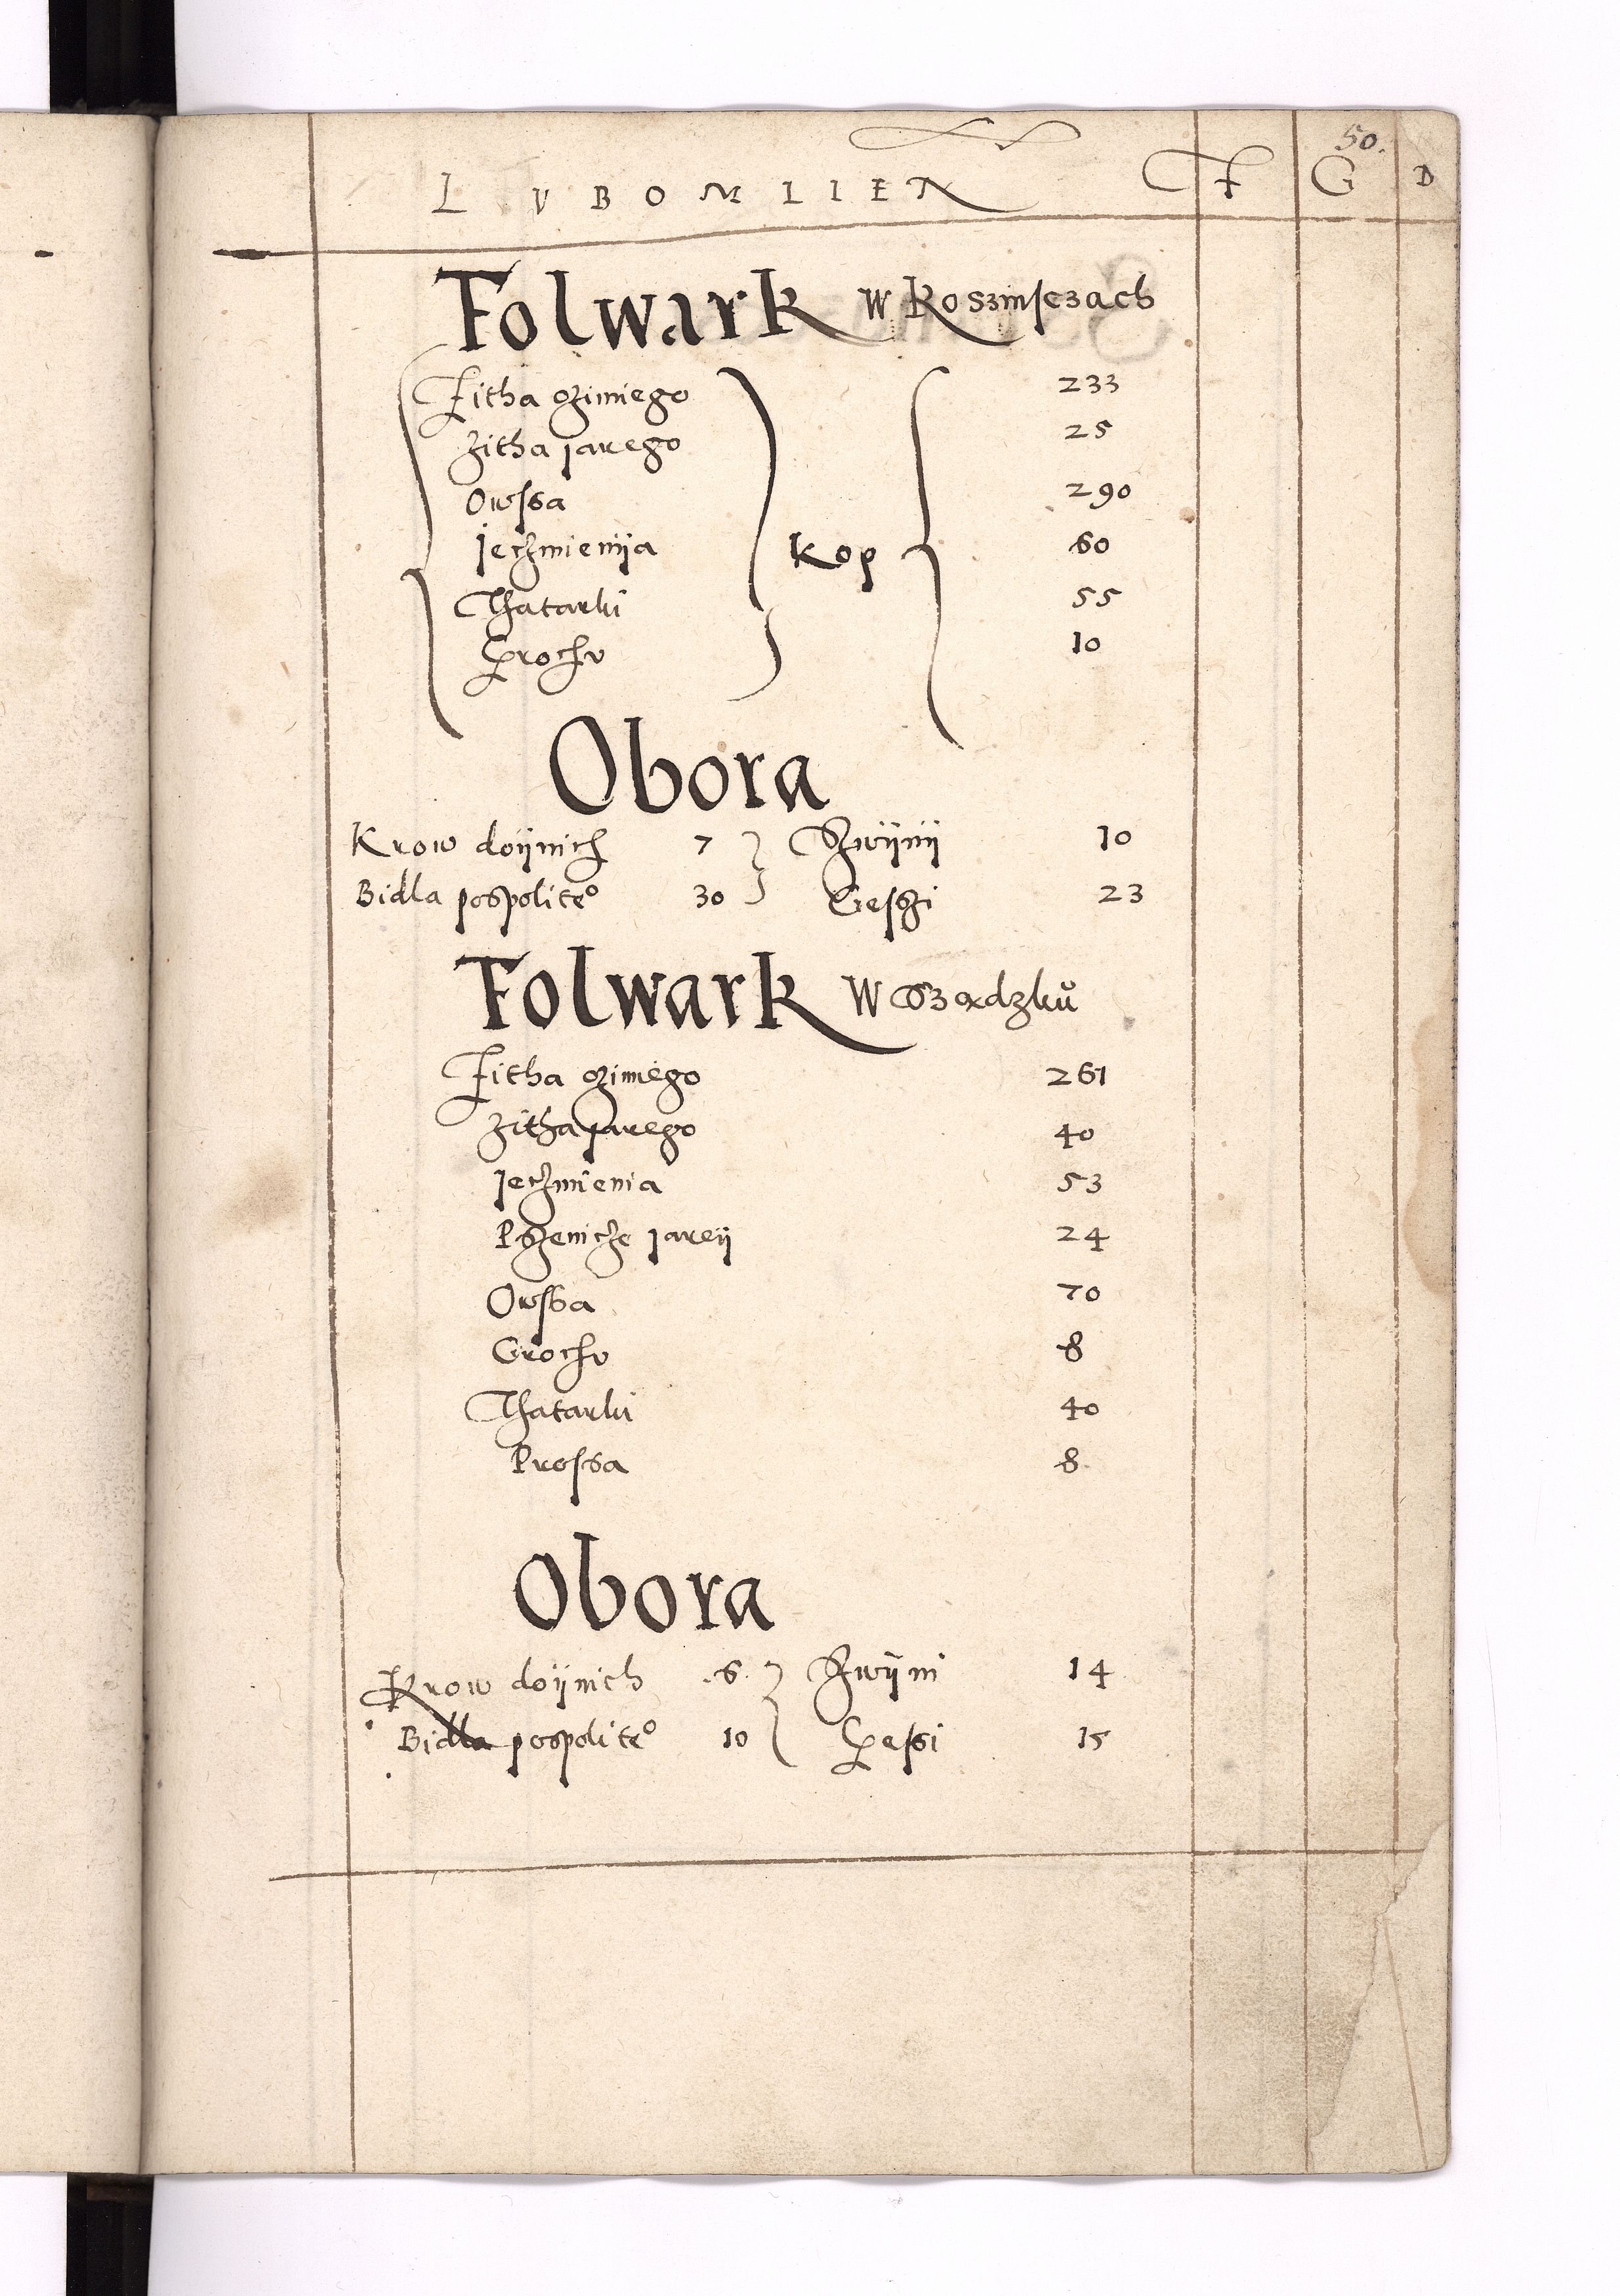 50.
LVBOMLIEN F G D
Folwark w Koszinſczach
Zitha ozimiego 233
Zitha jarego 25
Owſsa 290
Jeczmienija Kop 60
Thatarki 55
Grochv 10
Obora
Krow doijnich 7 Swijnij 10
Bidla pospoliteº 30 Gęſszi 23
Folwark W
Zitha ozimego 261
Zitha jarego 40
Jeczmienia 53
Pszenicze jareij 24
Owſsa 70
Grochv 8
Thatarki 40
Proſsa 8
Obora
Krow doijnich 6 Swijni 14
Bidla pospoliteº 10 Gęſsi 15